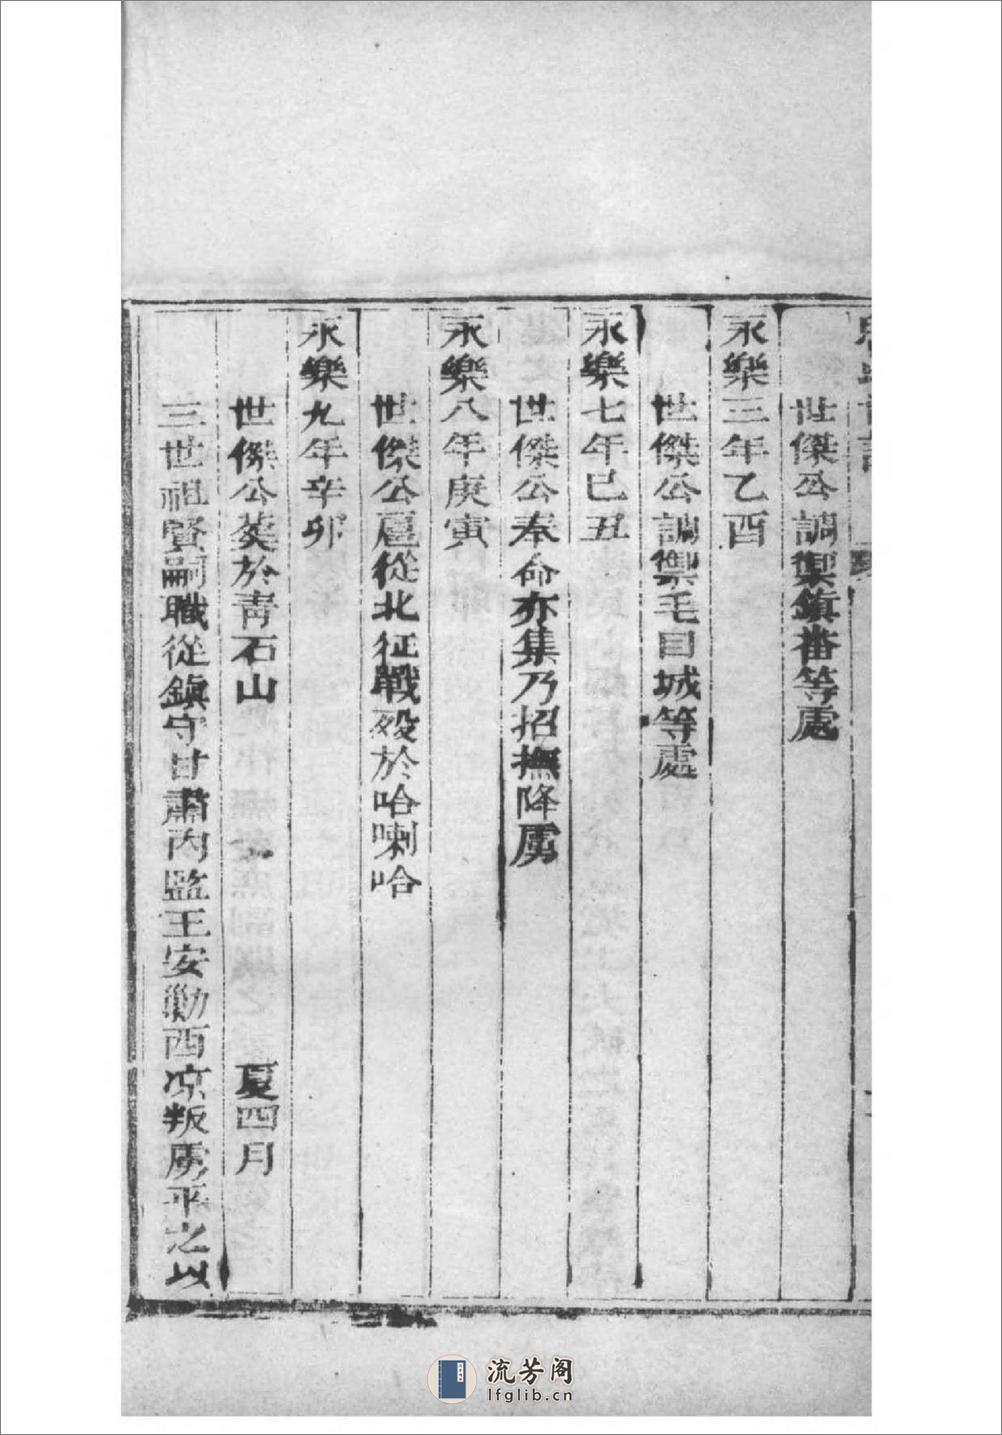 世傑公調禦鎮番等處
永樂三年乙酉
世傑公調禦毛目城等處
永樂七年已丑
世傑公奉命亦集乃招撫降虜
永樂八年庚寅
世傑公扈從北征戰歿於哈喇哈
永樂九年辛卯
世傑公葬於靑石山 夏四月
三世祖賢嗣職從鎮守甘肅內監王安勦西凉叛虜平之以
流芳阁
lfglib.cn